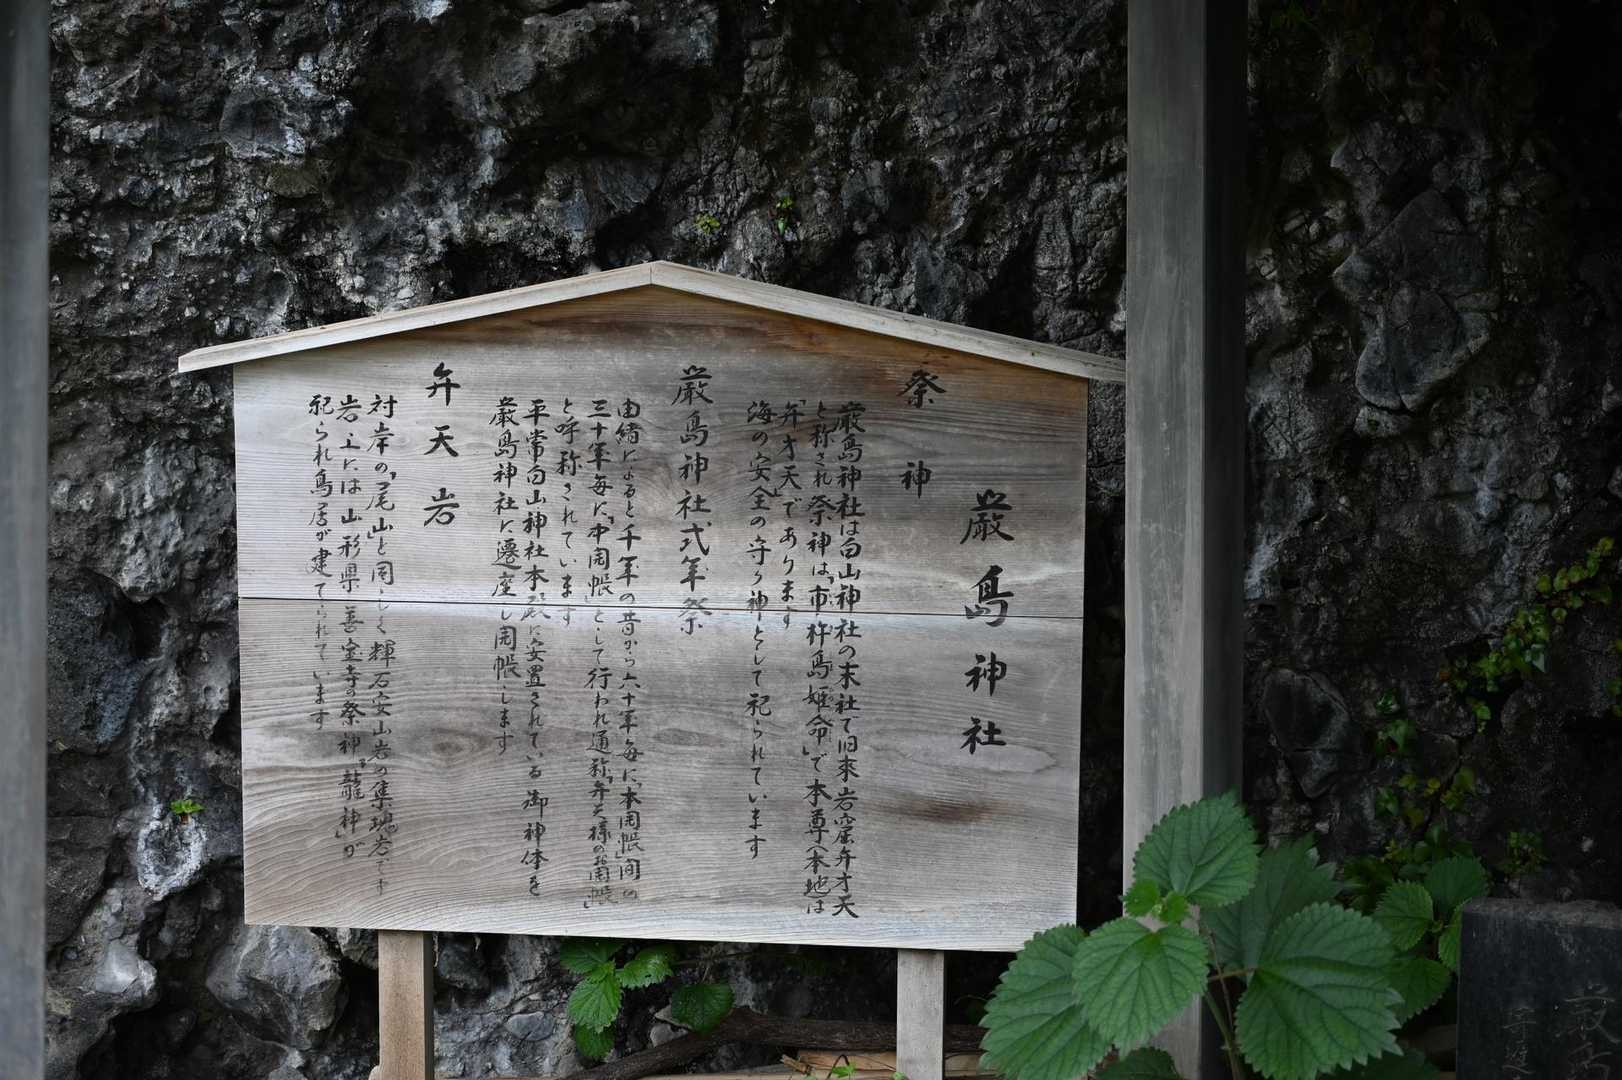 厳島神社
祭神
厳島神社は白山神社の末社で旧来岩窟弁才天
と称され祭神は「市杵島姫命」で本尊(本地は
「弁才天」であります
海の安全の守り神として祀られています
厳島神社式年祭
由緒によると千年の昔から六十年毎に「本開帳」間の
三十年毎に「中開帳」として行われ通称「弁天様のお開帳」
と呼称されています
平常白山神社本殿に安置されている御神体を
厳島神社に遷座し開帳します
弁天岩
対岸の「尾山」と同じく輝石安山岩の集塊岩です
岩上には山形県善宝寺の祭神「龍神」が
祀られ鳥居が建てられています